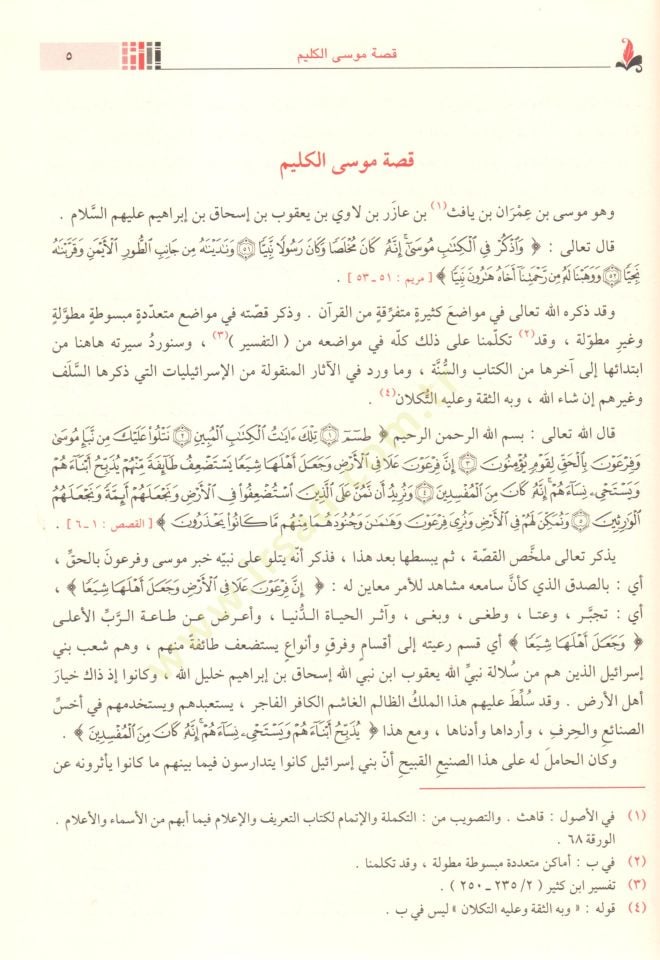 قصة موسى الكليم
٥
قصة موسى الكليم
وهو موسى بن عِمْرَان بن يافث(١) بن عازَر بن لاوي بن يعقوب بن إسحاق بن إبراهيم عليهم السَّلام .
قال تعالى : ﴿ وَٱذْكُرْ فِي ٱلْكِتَٰبِ مُوسَىٰٓ إِنَّهُۥ كَانَ مُخْلَصًا وَكَانَ رَسُولًا نَّبِيًّا ۝٥١ وَنَٰدَيْنَٰهُ مِن جَانِبِ ٱلطُّورِ ٱلْأَيْمَنِ وَقَرَّبْنَٰهُ
نَجِيًّا ۝٥٢ وَوَهَبْنَا لَهُۥ مِن رَّحْمَتِنَآ أَخَاهُ هَٰرُونَ نَبِيًّا ﴾ [ مريم : ٥١ ـ ٥٣ ] .
وقد ذكره الله تعالى في مواضعَ كثيرةٍ متفرّقةٍ من القرآن . وذكر قصّته في مواضع متعدّدةٍ مبسوطةٍ مطوّلةٍ
وغيرِ مطوّلة ، وقد(٢) تكلّمنا على ذلك كلّه في مواضعه من ( التفسير )(٣) ، وسنوردُ سيرته هاهنا من
ابتدائها إلى آخرها من الكتاب والسُّنَّة ، وما ورد في الآثار المنقولة من الإسرائيليات التي ذكرها السَّلَف
وغيرهم إن شاء الله ، وبه الثقة وعليه التُّكلان(٤) .
قال الله تعالى : بسم الله الرحمن الرحيم ﴿ طسٓمٓ ۝١ تِلْكَ ءَايَٰتُ ٱلْكِتَٰبِ ٱلْمُبِينِ ۝٢ نَتْلُوا۟ عَلَيْكَ مِن نَّبَإِ مُوسَىٰ
وَفِرْعَوْنَ بِٱلْحَقِّ لِقَوْمٍ يُؤْمِنُونَ ۝٣ إِنَّ فِرْعَوْنَ عَلَا فِي ٱلْأَرْضِ وَجَعَلَ أَهْلَهَا شِيَعًا يَسْتَضْعِفُ طَآئِفَةً مِّنْهُمْ يُذَبِّحُ أَبْنَآءَهُمْ
وَيَسْتَحْيِۦ نِسَآءَهُمْ إِنَّهُۥ كَانَ مِنَ ٱلْمُفْسِدِينَ ۝٤ وَنُرِيدُ أَن نَّمُنَّ عَلَى ٱلَّذِينَ ٱسْتُضْعِفُوا۟ فِي ٱلْأَرْضِ وَنَجْعَلَهُمْ أَئِمَّةً وَنَجْعَلَهُمُ
ٱلْوَٰرِثِينَ ۝٥ وَنُمَكِّنَ لَهُمْ فِي ٱلْأَرْضِ وَنُرِيَ فِرْعَوْنَ وَهَٰمَٰنَ وَجُنُودَهُمَا مِنْهُم مَّا كَانُوا۟ يَحْذَرُونَ ﴾ [ القصص : ١ ـ ٦ ] .
يذكر تعالى ملخَّص القصّة ، ثم يبسطها بعد هذا ، فذكر أنّه يتلو على نبيّه خبر موسى وفرعونَ بالحقِّ ،
أي : بالصدق الذي كأنَّ سامعه مشاهد للأمر معاين له : ﴿ إِنَّ فِرْعَوْنَ عَلَا فِي ٱلْأَرْضِ وَجَعَلَ أَهْلَهَا شِيَعًا ﴾ ،
أي : تجبَّر ، وعتا ، وطغى ، وبغى ، وآثر الحياة الدُّنيا ، وأعرض عن طاعة الرَّبِّ الأعلى
﴿ وَجَعَلَ أَهْلَهَا شِيَعًا ﴾ أي قسم رعيته إلى أقسام وفرقٍ وأنواعٍ يستضعف طائفةً منهم ، وهم شعب بني
إسرائيل الذين هم من سُلالة نبيِّ الله يعقوب ابن نبي الله إسحاق بن إبراهيم خليل الله ، وكانوا إذ ذاك خيارَ
أهل الأرض . وقد سُلِّطَ عليهم هذا الملكُ الظالم الغاشم الكافر الفاجر ، يستعبدهم ويستخدمهم في أخسِّ
الصنائع والحِرفِ ، وأرداها وأدناها ، ومع هذا ﴿ يُذَبِّحُ أَبْنَآءَهُمْ وَيَسْتَحْيِۦ نِسَآءَهُمْ إِنَّهُۥ كَانَ مِنَ ٱلْمُفْسِدِينَ ﴾ .
وكان الحاملَ له على هذا الصنيع القبيح أنّ بني إسرائيل كانوا يتدارسون فيما بينهم ما كانوا يأثرونه عن
(١) في الأصول : قاهث . والتصويب من : التكملة والإتمام لكتاب التعريف والإعلام فيما أبهم من الأسماء والأعلام .
الورقة ٦٨ .
(٢) في ب : أماكن متعددة مبسوطة مطولة ، وقد تكلمنا .
(٣) تفسير ابن كثير ( ٢/ ٢٣٥ ـ ٢٥٠ ) .
(٤) قوله : « وبه الثقة وعليه التكلان » ليس في ب .